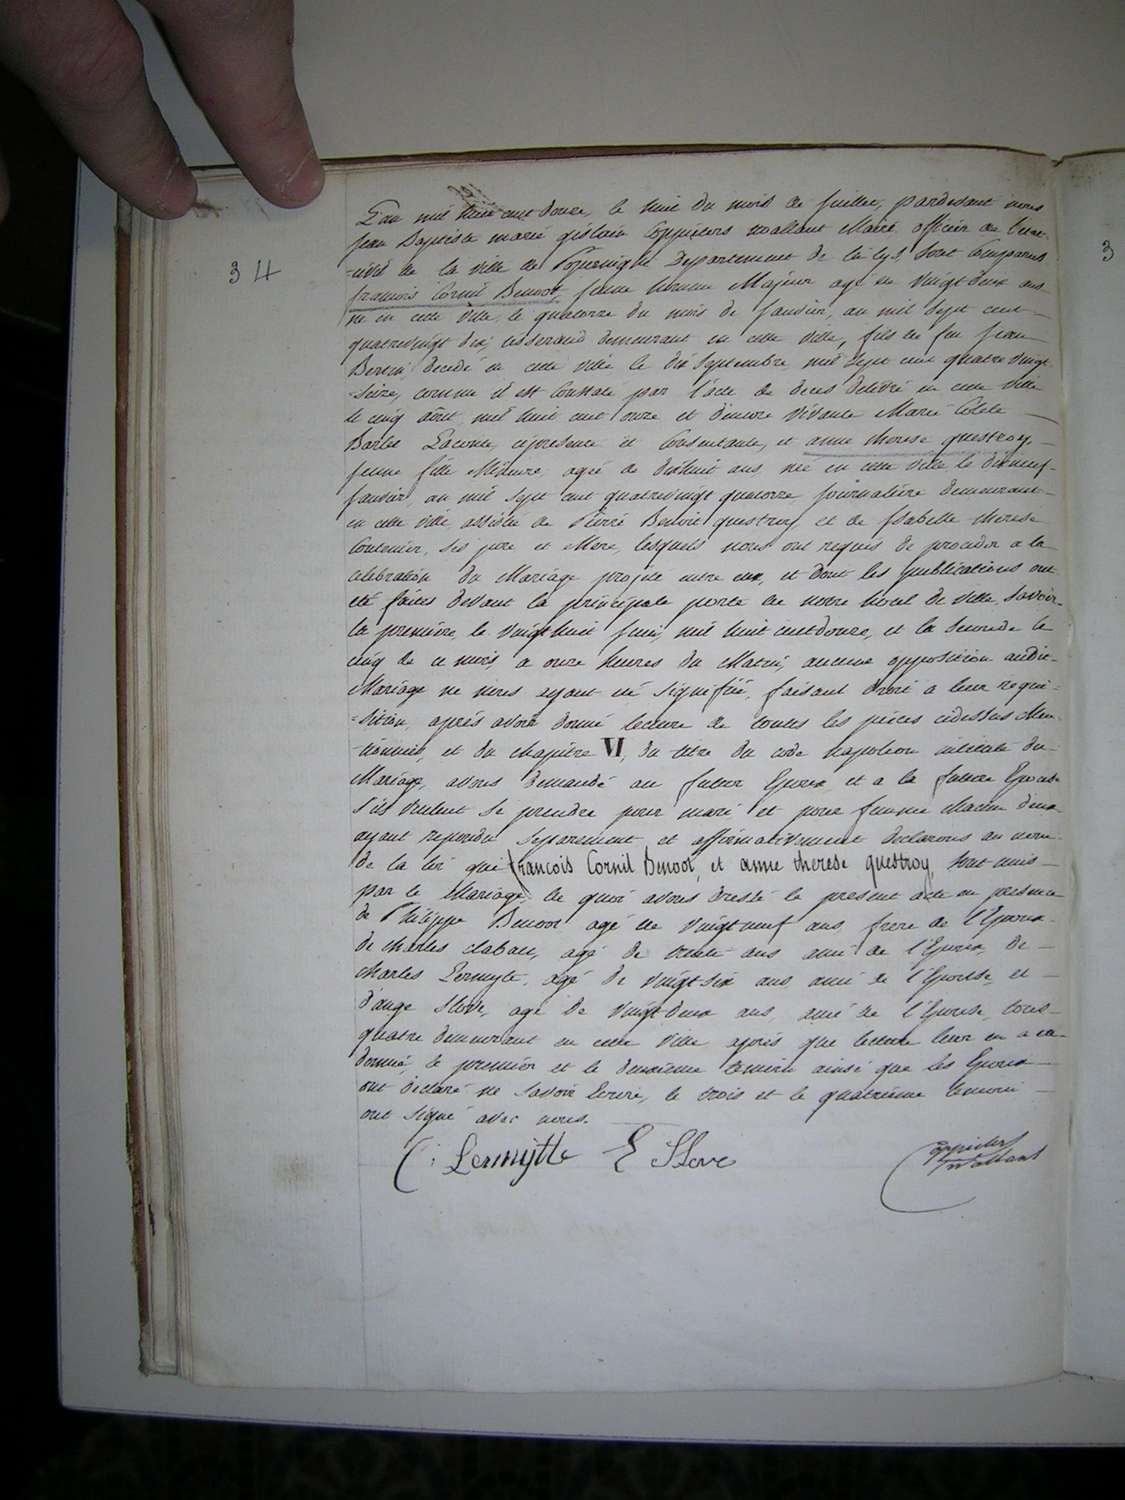 34
L'an mil huit cent douze, le huit du mois de Juillet, pardevant nous
jean Baptiste marie gislain Coppieters wallant Maire officier de l'etat-
-civil de la ville de Poperinghe Departement de la lys, sont Comparus
francois Cornil Benoot, jeune homme Majeur agé de vingt deux ans
né en cette ville le quatorze du mois de janvier, an mil sept cent
quatrevingt dix, tisserand demeurant en cette ville, fils de feu jean
decedé en cette ville le dix Septembre mil sept cent quatre vingt
Seize, comme il est Constaté par l'acte de deces delivré en cette ville
le cinq août mil huit cent onze et d'encore vivante Marie Colete
Barbe cipresente et Consentante, et anne therese questroy,
jeune fille Mineure, agée de dixhuit ans, née en cette ville le dixneuf
janvier, an mil sept cent quatrevingt quatorze, journaliere demeurant
en cette ville, assistée de Pierre Benoit questroy, et de Isabelle therese
ses pere et Mere, lesquels nous ont requis de proceder a la
celebration du Mariage projetté entre eux, et dont les publications ont
eté faites devant la principale porte de notre hotel de ville, Savoir
la premiere, le vingthuit juin, mil huit cent douze, et la seconde le
cinq de ce mois, a onze heures du Matin, aucune opposition audit
Mariage ne nous ayant eté Signifiée, faisant droit a leur requi-
-sition, après avoir donné lecture de toutes les pièces cidessus Men-
-tionnées, et du chapitre VI, du titre du code Napoleon intitulé du
Mariage, avons demandé au futur Epoux et a la future Epouse
s'ils veulent se prendre pour mari et pour femme Chacun d'eux
ayant repondu separement et affirmativement declarons au nom
de la loi que francois Cornil Benoot, et anne therese questroy, sont unis
par le Mariage, de quoi avons dressé le present acte en presence
de Philippe Benoot agé de vingtneuf ans, frere de l'Epoux
de charles clabau, agé de trente ans ami de l'Epoux, de
charles Lermytte, agé de vingtsix ans, ami de l'Epouse, et
d'ange Slove, agé de vingtdeux ans, ami de l'Epouse, tous
quatre demeurant en cette ville après que lecture leur en a eté
donnée, le premier et le deuxieme temoin ainsi que les Epoux
ont declaré ne savoir Ecrire, le trois et le quatrieme temoin
ont signé avec nous.
C: Lermytte E Slove Coppieters
Wallant
3